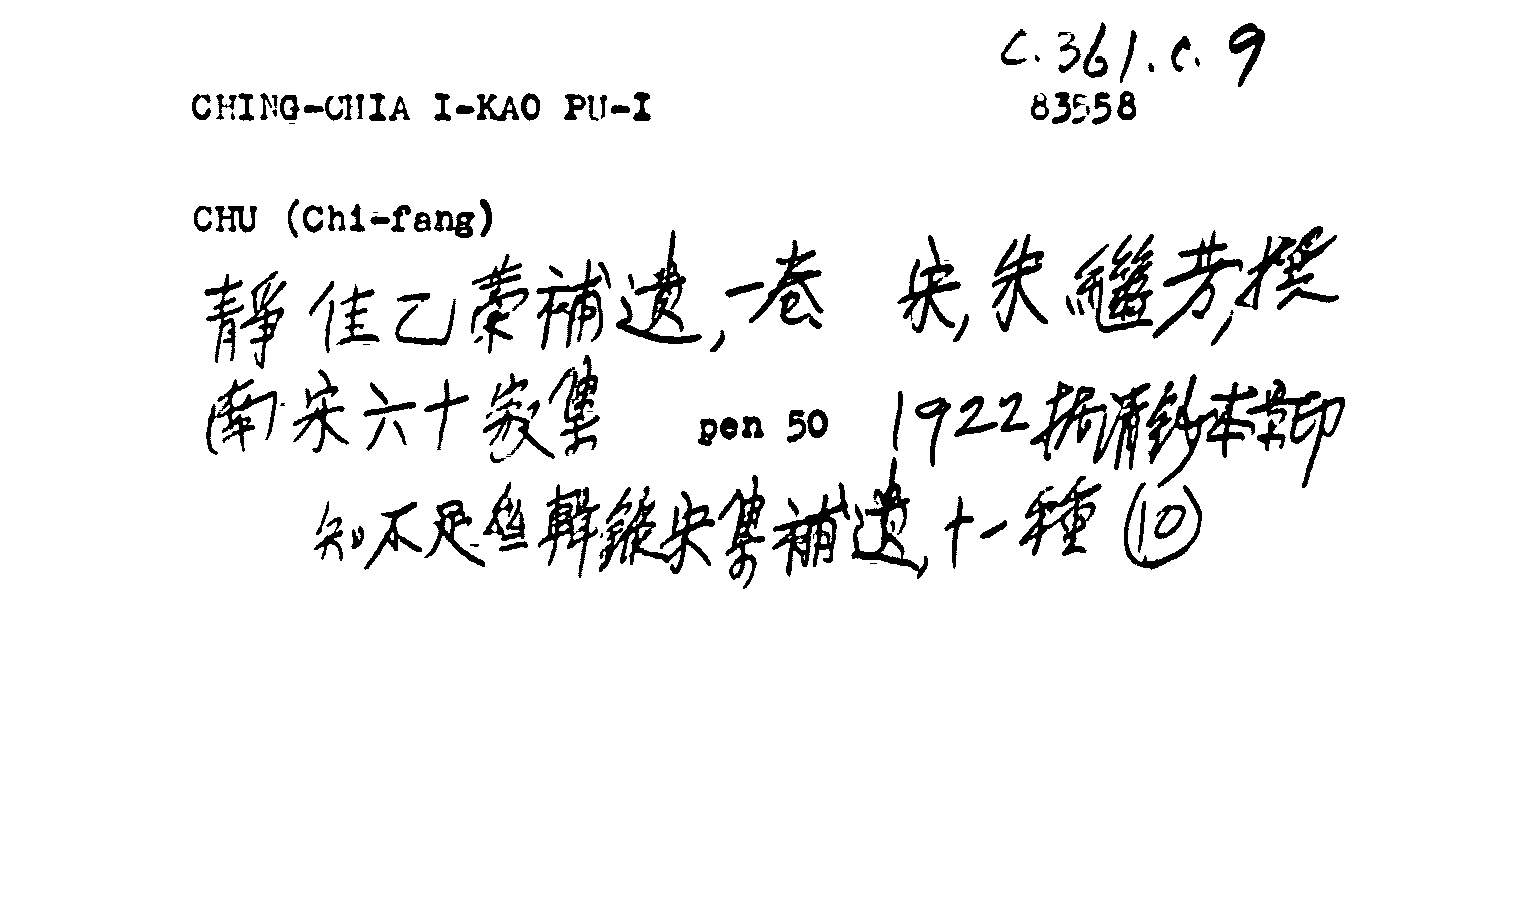 C.361.c.9
CHING-CHIA I-KAO PU-I 83558
CHU (Chi-fang)
靜佳乙藁補遺,一卷 宋,朱繼芳,撰
南宋六十家集 pen 50 1922據清鈔本景印
知不足齋輯錄宋集補遺,十一種 ⑩